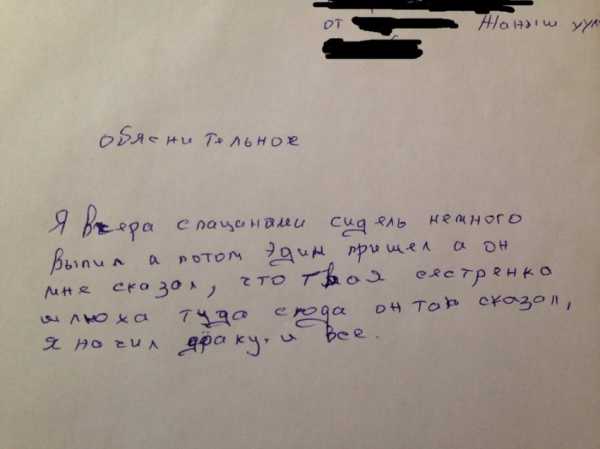 от Жаныш уулу
обяснительное
Я вчера спацанами сидель немного
выпил а потом Эдим пришел а он
мне сказал, что твоя сястренка
шлюха туда сюда он так сказал,
я начил драку. и все.